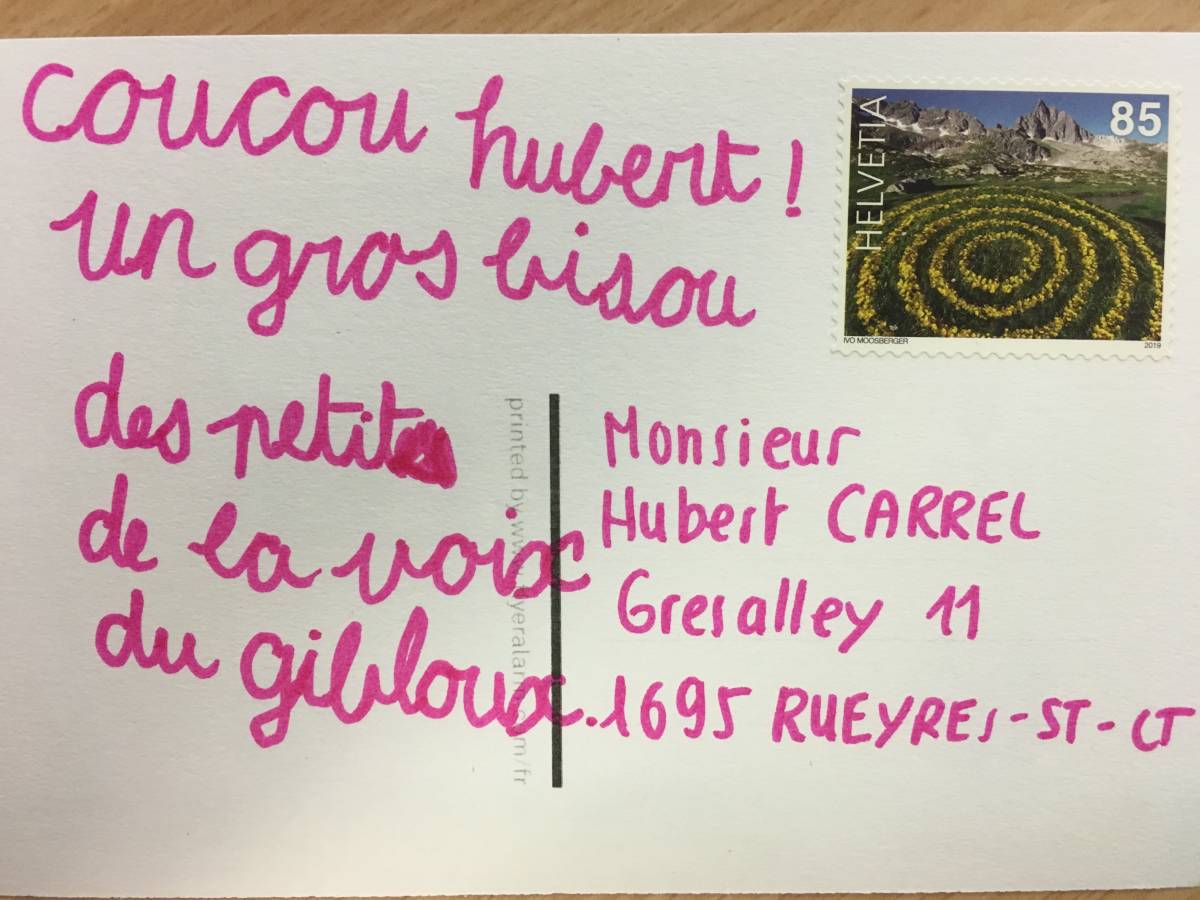 coucou hubert !
un gros bisou
des petits
de la voix
du gibloux.
HELVETIA
85
IVO MOOSBERGER
2019
printed by www.
yeralan
m/fr
Monsieur
Hubert CARREL
Gresalley 11
1695 RUEYRES-ST-CT